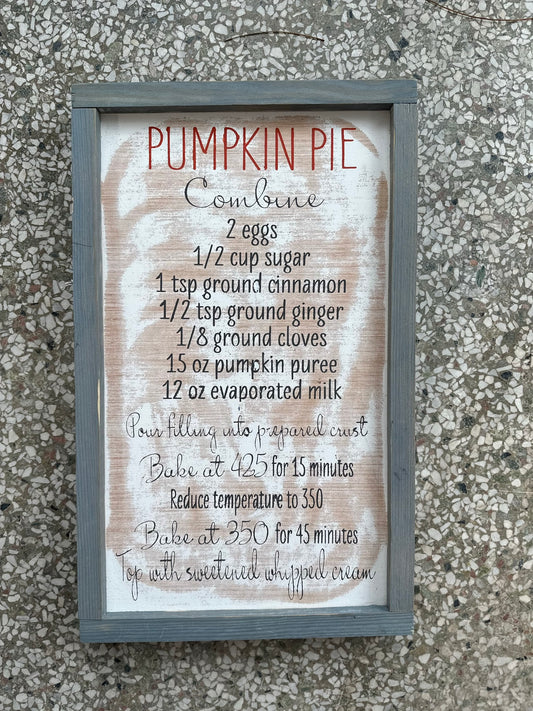 PUMPKIN PIE
Combine
2 eggs
1/2 cup sugar
1 tsp ground cinnamon
1/2 tsp ground ginger
1/8 ground cloves
15 oz pumpkin puree
12 oz evaporated milk
Pour filling into prepared crust
Bake at 425 for 15 minutes
Reduce temperature to 350
Bake at 350 for 45 minutes
Top with sweetened whipped cream